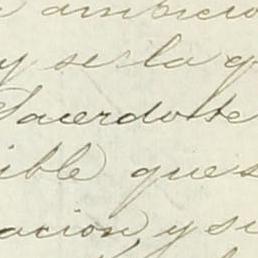 ambicio
y se la q
Sacerdote
ible que s
acion y si